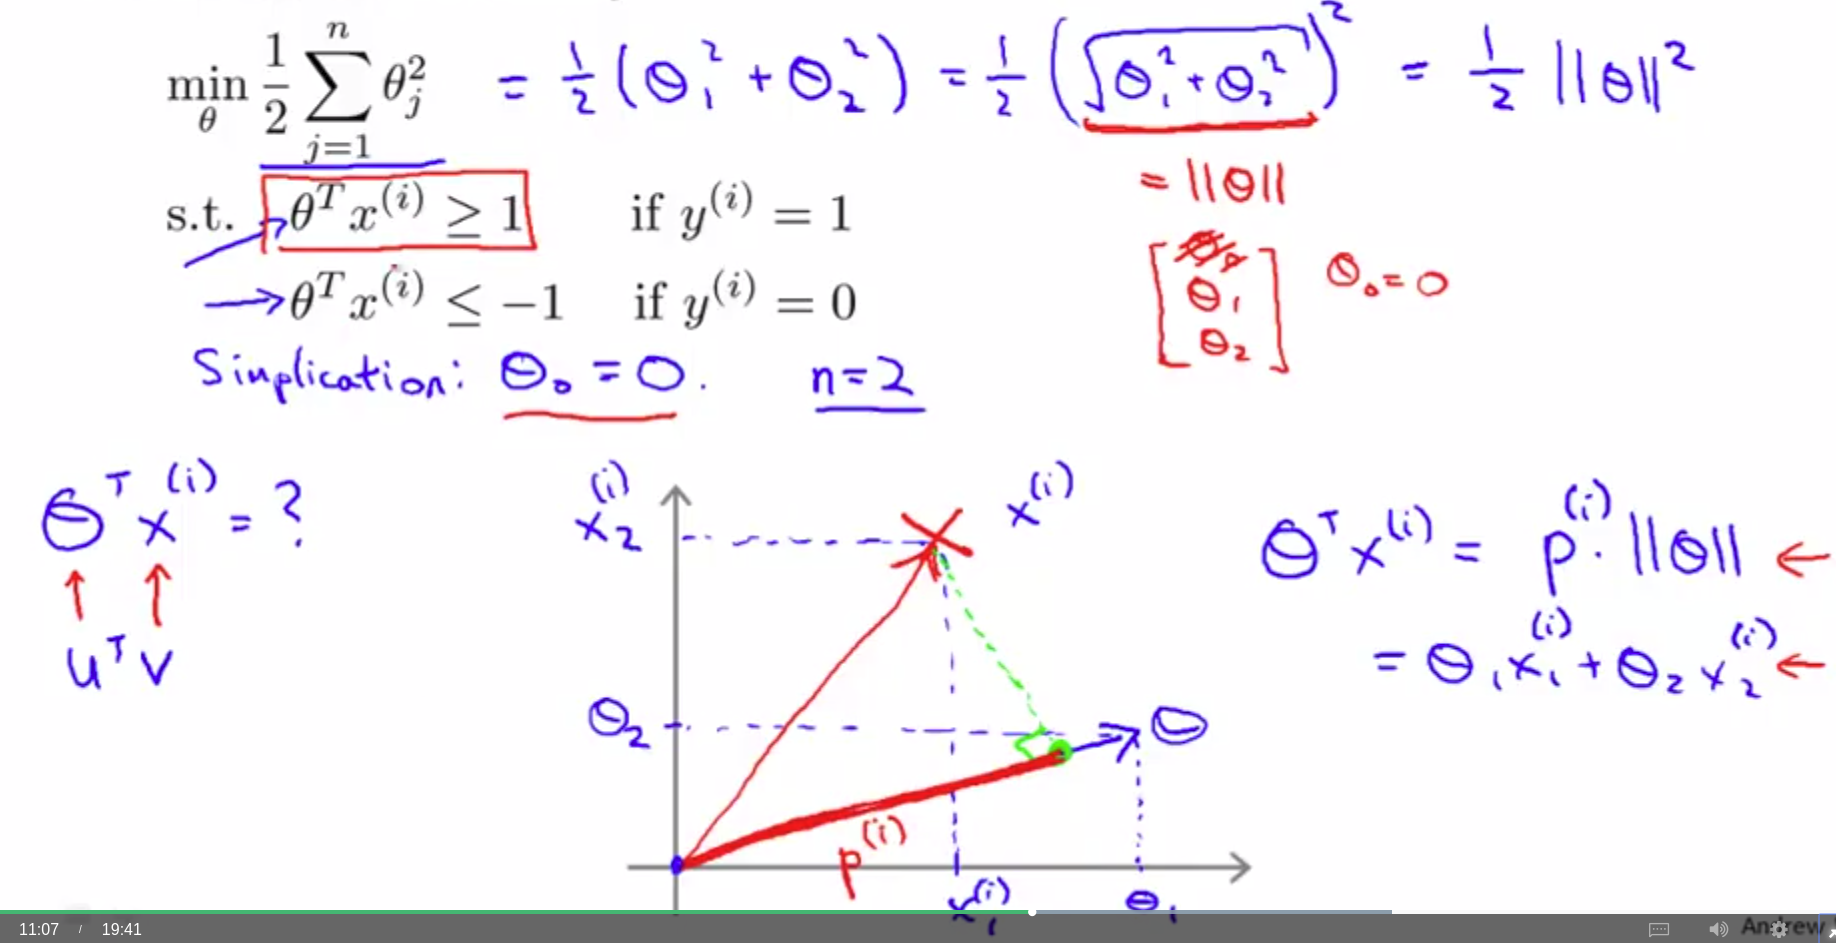 min_θ 1/2 Σ_{j=1}^{n} θ_j^2 = 1/2 (Θ_1^2 + Θ_2^2) = 1/2 (√(Θ_1^2 + Θ_2^2))^2 = 1/2 ||Θ||^2
= ||Θ||
s.t. θ^T x^(i) ≥ 1 if y^(i) = 1
[Θ_0 Θ_1 Θ_2] Θ_0 = 0
→ θ^T x^(i) ≤ −1 if y^(i) = 0
Simplication: Θ_0 = 0. n = 2
Θ^T x^(i) = ?
↑ ↑
u^T v
x_2^(i)
x^(i)
Θ_2
Θ
p^(i)
x_1^(i)
Θ_1
Θ^T x^(i) = p^(i) · ||Θ|| ←
= Θ_1 x_1^(i) + Θ_2 x_2^(i) ←
11:07 / 19:41
Andrew